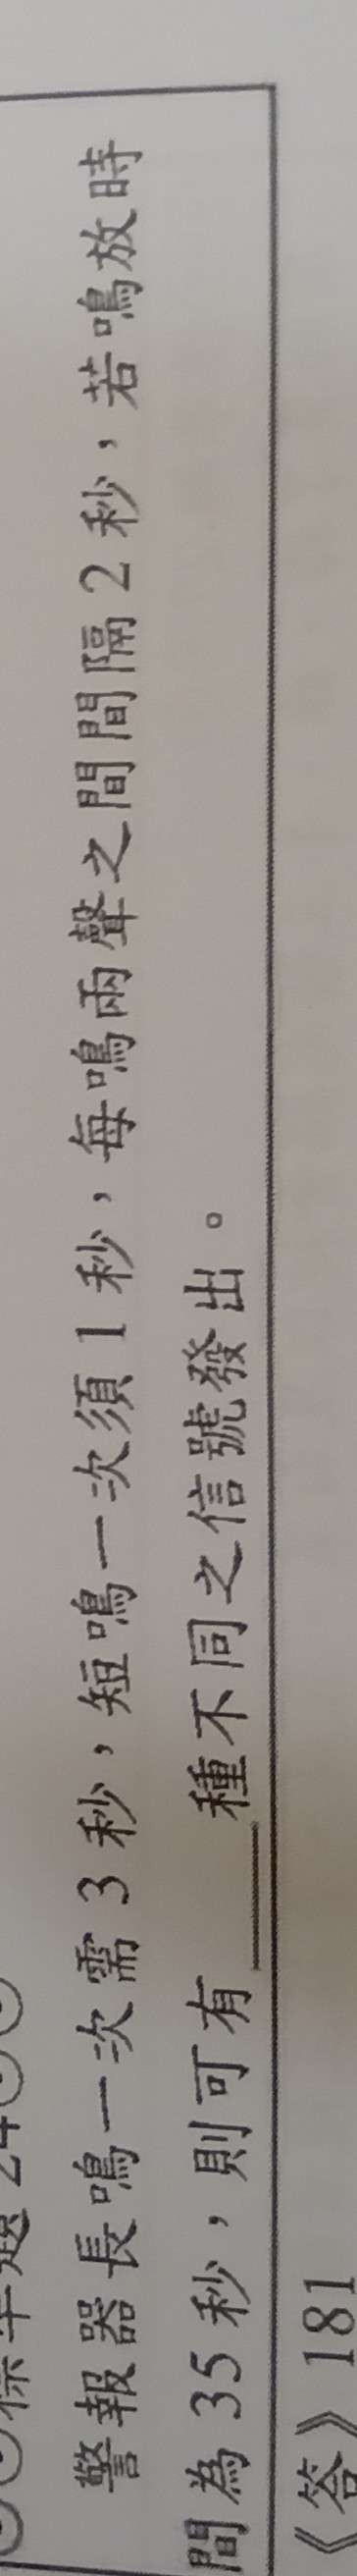 標準題 24
警報器長鳴一次需 3 秒，短鳴一次須 1 秒，每鳴兩聲之間間隔 2 秒，若鳴放時
間為 35 秒，則可有____種不同之信號發出。
《答》181